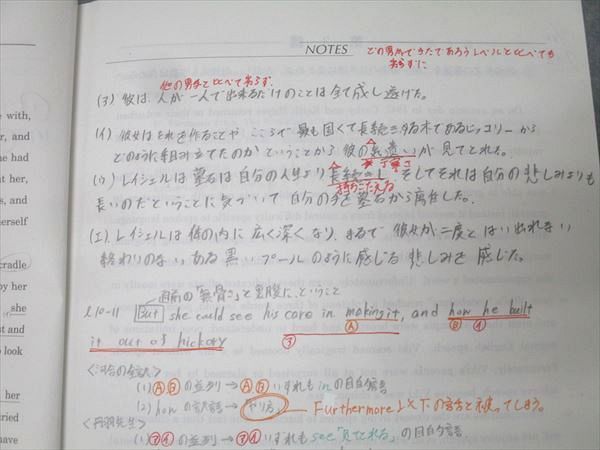 NOTES
どの男ができたであろうレベルと比べても
おらずに
他の男手と比べて劣らず
(ア) 彼は、人が一人で出来るだけのことは全て成し遂げた。
(イ) 彼女はそれを作ることや ここらで最も固くて長続きする木であるヒッコリーから
どのように組み立てたのか ということから 彼の気遣いが見てとれた。
丁寧さ
(ウ) レイシェルは墓石は自分の人生より長続きし そしてそれは自分の悲しみよりも
持ちこたえる
長いのだということに気づいて自分の手を墓石から離した。
(エ) レイシェルは体の内に広く深くなり、まるで彼女が二度とはい出れない
終わりのない、ある黒いプールのように感じる 悲しみを感じた。
直前の「無骨」と裏腹に、ということ
l.10-11 But she could see his care in making it, and how he built
Ⓐ Ⓑ ④
it out of hickory
③
(1) ⒶⒷの並列→ⒶⒷいずれも in の目的語
(2) how の訳語→「やり方」 Furthermore以下の話と被ってしまう。
<丹羽先生>
(1) ㋐㋑の並列→㋐㋑いずれも see「見てとれる」の目的語
with,
and
she had
herself
cradle
by her
she
and
to look
her
cried
have